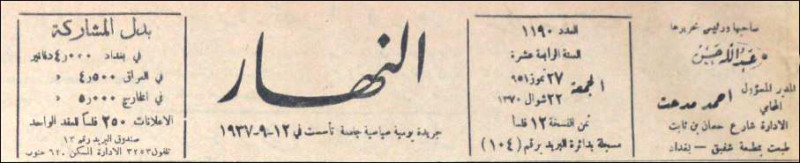 صاحبها ورئيس تحريرها
عبدالله حسن
المدير المسؤول
المحامي
احمد مدحت
الادارة شارع حسان بن ثابت
طبعت بمطبعة شفيق - بغداد
العدد ١١٩٠
السنة الرابعة عشرة
الجمعة
٢٧ تموز ٩٥١
٢٢ شوال ١٣٧٠
ثمن النسخة ١٢ فلسا
مسجلة بدائرة البريد برقم (١٠٤)
النهار
جريدة يومية سياسية جامعة تأسست في ١٢-٩-١٩٣٧
بدل المشاركة
في بغداد ٠٠٠ر٤ دنانير
في العراق ٥٠٠ر٤ »
في الخارج ٠٠٠ر٥ »
الاعلانات ٢٥٠ فلسا للعقد الواحد
صندوق البريد رقم ١٣
تلفون ٣٢٥٣ الادارة السكن ٦٢٠ جنوب